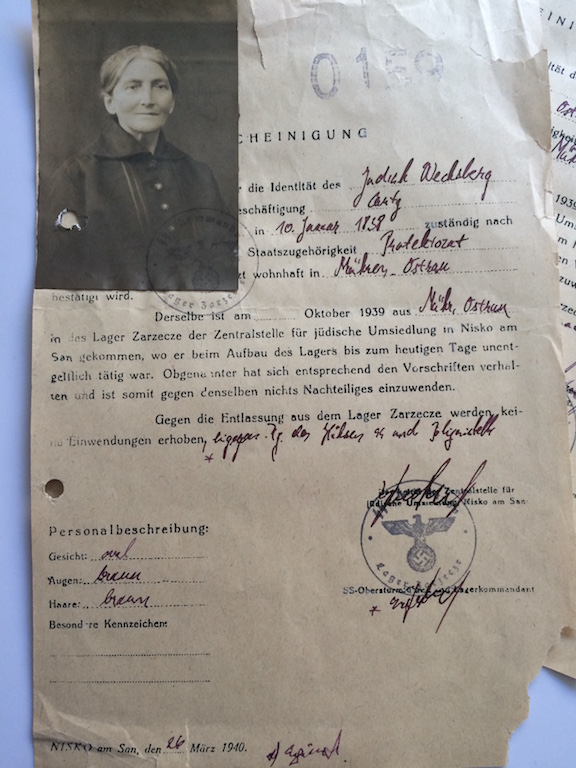 0159
CHEINIGUNG
r die Identität des Judith Wechsberg
eschäftigung
in 10. Januar 18 8 zuständig nach
Staatszugehörigkeit Protektorat
zt wohnhaft in Mähren-Ostrau
bestätigt wird.
Derselbe ist am Oktober 1939 aus Mähr. Ostrau
in das Lager Zarzecze der Zentralstelle für jüdische Umsiedlung in Nisko am
San gekommen, wo er beim Aufbau des Lagers bis zum heutigen Tage unent-
geltlich tätig war. Obgenannter hat sich entsprechend den Vorschriften verhal-
ten und ist somit gegen denselben nichts Nachteiliges einzuwenden.
Gegen die Entlassung aus dem Lager Zarzecze werden kei-
ne Einwendungen erhoben, des SS und
*
der Zentralstelle für
jüdische Umsiedlung Nisko am San
Lager Zarzecze
SS-Obersturmführer und Lagerkommandant
*
Personalbeschreibung:
Gesicht: oval
Augen: braun
Haare: braun
Besondere Kennzeichen:
NISKO am San, den 26 März 1940.
Lager Zarzecze